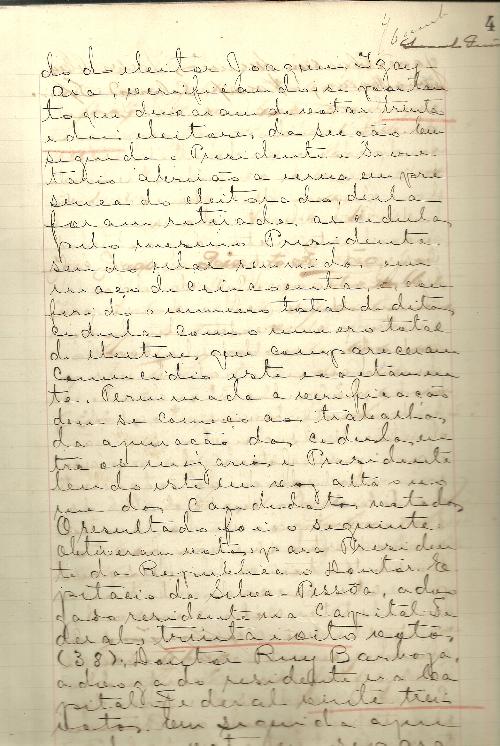 4
do do eleitor Joaquim Ignacio
verificando-se por tan
to que deixaram de votar trinta
e dois eleitores da secção. Em
seguida o Presidente e Secre
tario abrirão a urna em pre
sença do eleitorado, della
foram retiradas as cedulas
pelo mesmo Presidente
sendo ellas reunidas em
maço de cincoenta e con
ferido o numero total de ditas
cedulas com o numero total
de eleitores, que compareceram
coincidio este exactamen
te. Terminada a verificação
deu se começo ao trabalho
da apuração das cedulas, en
tre os mezarios e Presidente
lendo este em voz alta o no
me dos Candidatos votados
O resultado foi o seguinte
Obtiveram votos para Presiden
te da Republica o Doutor E
pitacio da Silva Pessôa, advo
gado residente na Capital Fe
deral, trinta e oito votos,
(38); Doutor Ruy Barboza,
advogado residente na Ca
pital Federal vinte trez
votos. Em seguida apu